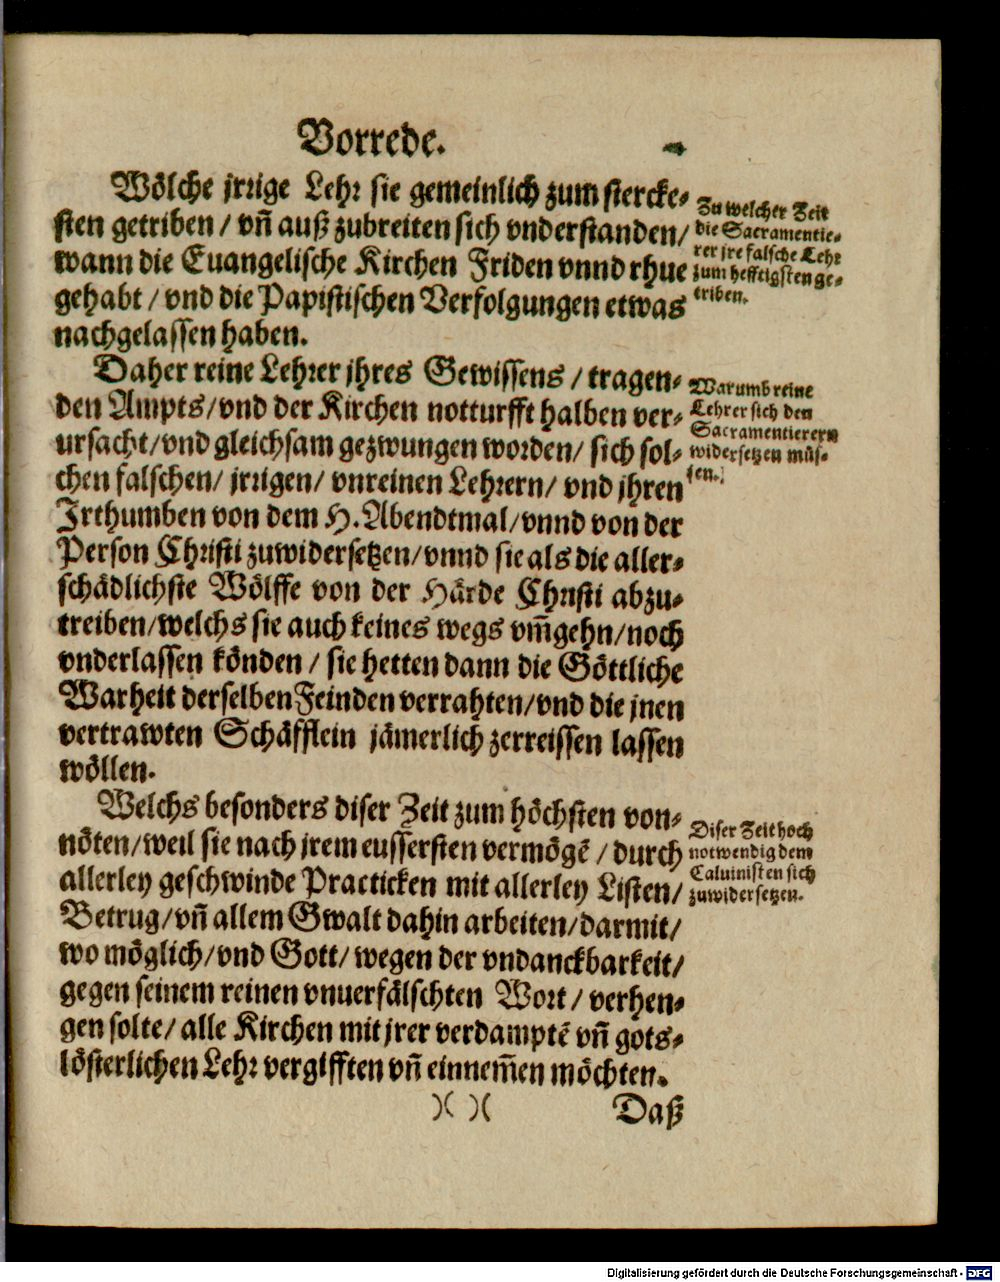 Vorrede.
Wölche jrrige Lehr sie gemeinlich zum stercke-
sten getriben / vñ auß zubreiten sich vnderstanden/
wann die Euangelische Kirchen Friden vnnd rhue
gehabt / vnd die Papistischen Verfolgungen etwas
nachgelassen haben.
Zu welcher Zeit
die Sacramentie-
rer jre falsche Lehr
zum hefftigsten ge-
triben.
Daher reine Lehrer jhres Gewissens / tragen-
den Ampts/vnd der Kirchen notturfft halben ver-
ursacht/vnd gleichsam gezwungen worden/ sich sol-
chen falschen/ jrrigen/ vnreinen Lehrern/ vnd jhren
Irthumben von dem H. Abendtmal/vnnd von der
Person Christi zuwidersetzen/vnnd sie als die aller-
schädlichste Wölffe von der Härde Christi abzu-
treiben/welchs sie auch keines wegs vm̃gehn/noch
vnderlassen könden / sie hetten dann die Göttliche
Warheit derselben Feinden verrahten/vnd die jnen
vertrawten Schäfflein jämerlich zerreissen lassen
wöllen.
Warumb reine
Lehrer sich den
Sacramentierern
widersetzen müs-
sen.
Welchs besonders diser Zeit zum höchsten von-
nöten/weil sie nach jrem eussersten vermögẽ / durch
allerley geschwinde Practicken mit allerley Listen/
Betrug/vñ allem Gwalt dahin arbeiten/darmit/
wo möglich/vnd Gott/ wegen der vndanckbarkeit/
gegen seinem reinen vnuerfälschten Wort / verhen-
gen solte/ alle Kirchen mit jrer verdamptẽ vñ gots-
lösterlichen Lehr vergifften vñ einnem̃en möchten.
Diser Zeit hoch
notwendig dem
Caluinisten sich
zuwidersetzen.
)( )( Daß
Digitalisierung gefördert durch die Deutsche Forschungsgemeinschaft - DFG